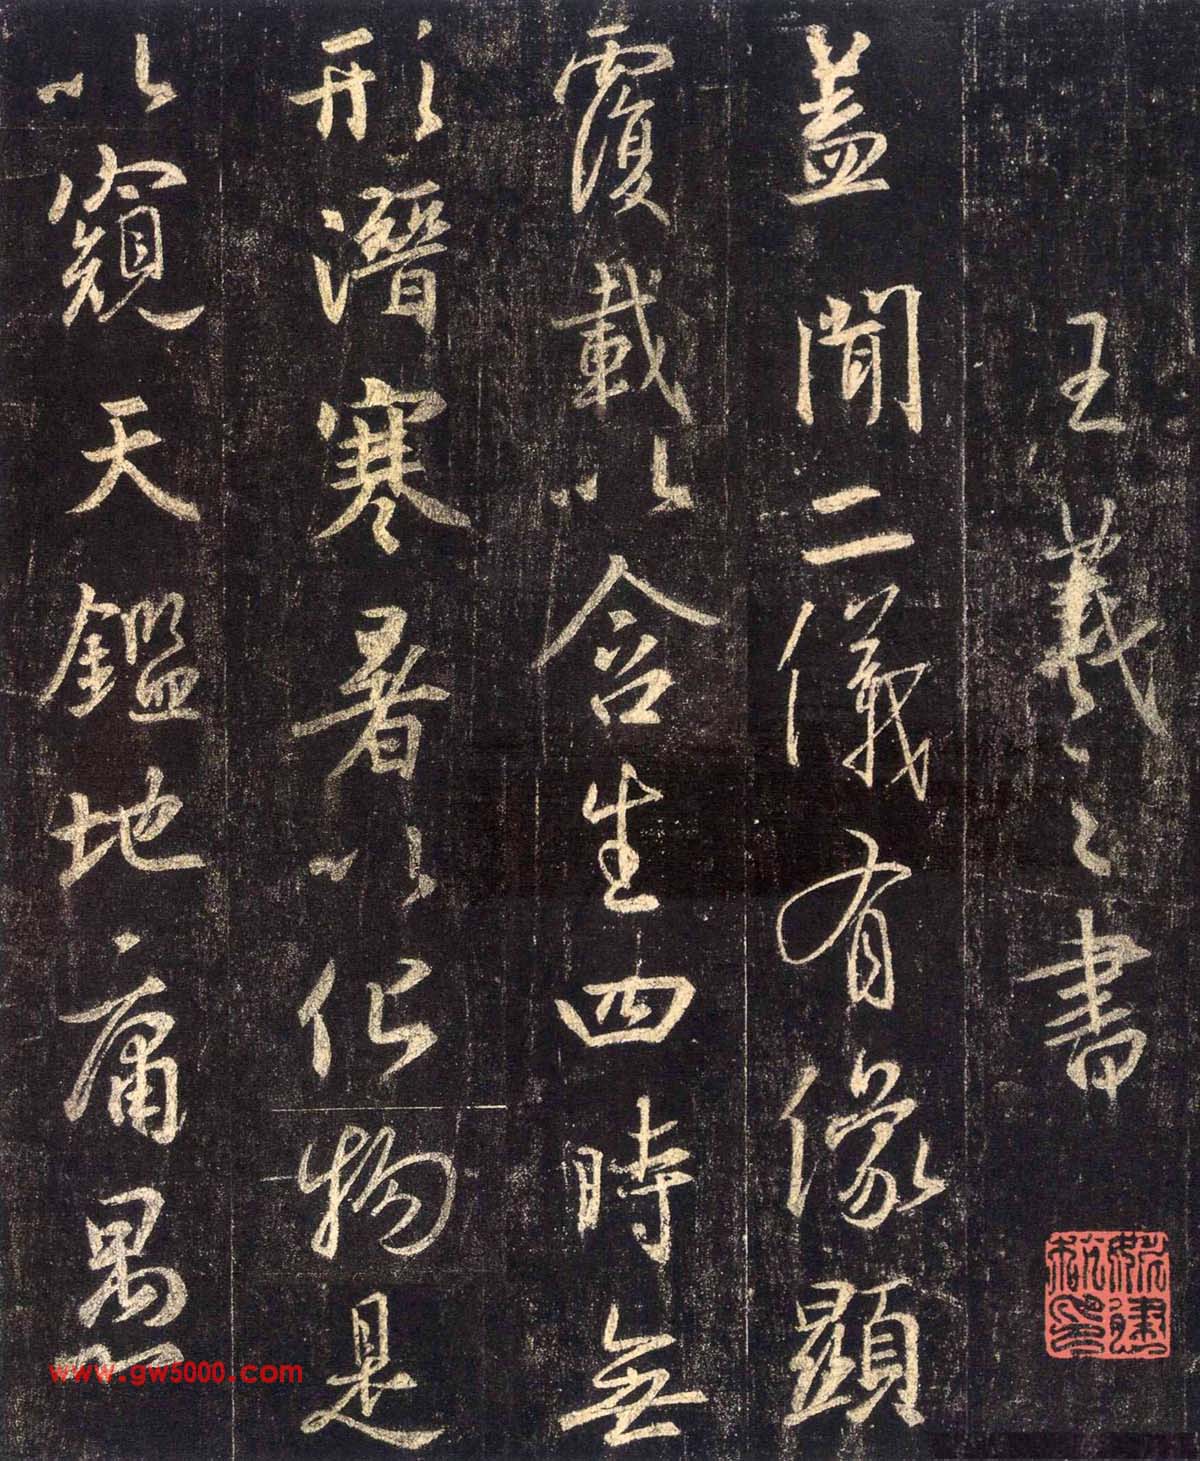 王羲之書
盖聞二儀有像顯
覆載以含生四時無
形潛寒暑以化物是
以窺天鑑地庸愚
www.gw5000.com